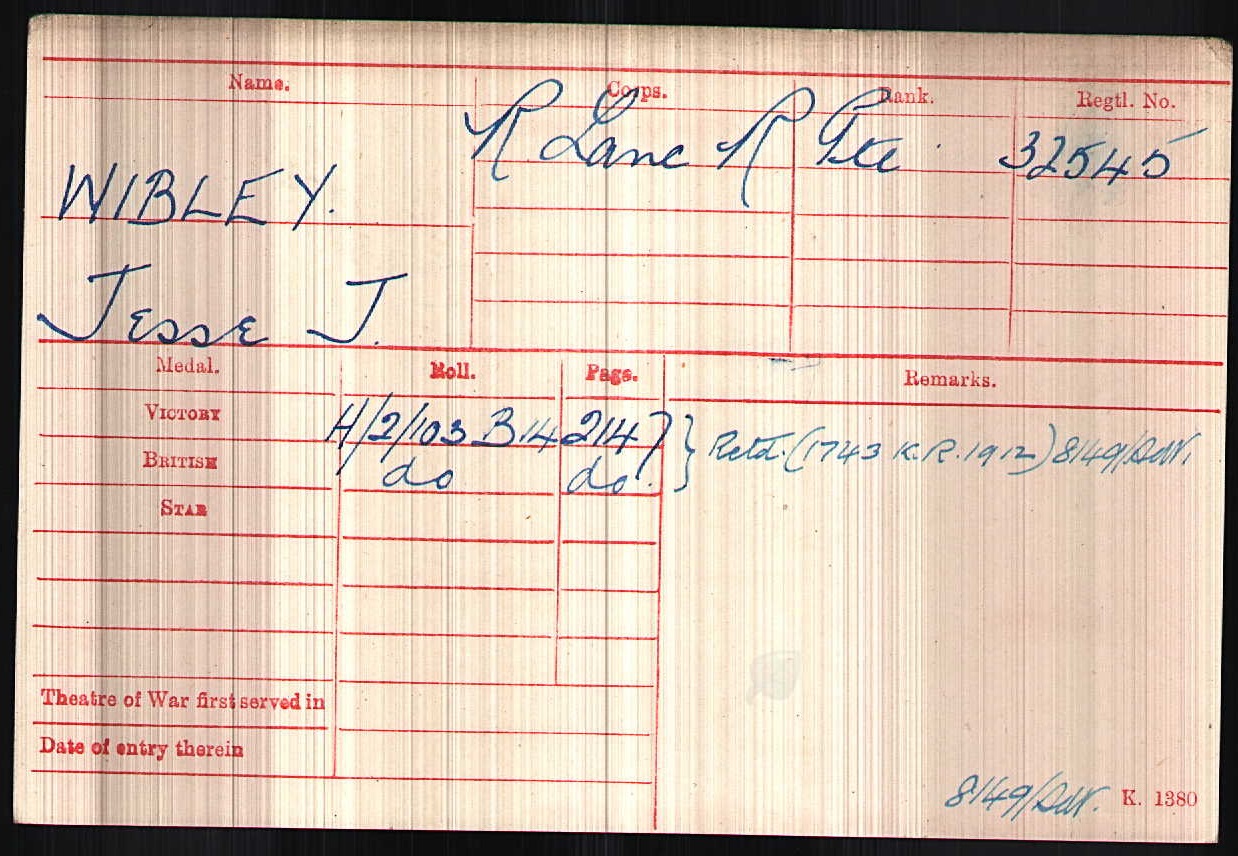 Name. Corps. Rank. Regtl. No.
R Lanc R Pte 32545
WIBLEY.
Jesse J.
Medal. Roll. Page. Remarks.
VICTORY H/2/103 B14 2147 } Retd. (1743 K.R. 1912) 8149/Adt.
BRITISH do do.
STAR
Theatre of War first served in
Date of entry therein
8149/Adt. K. 1380